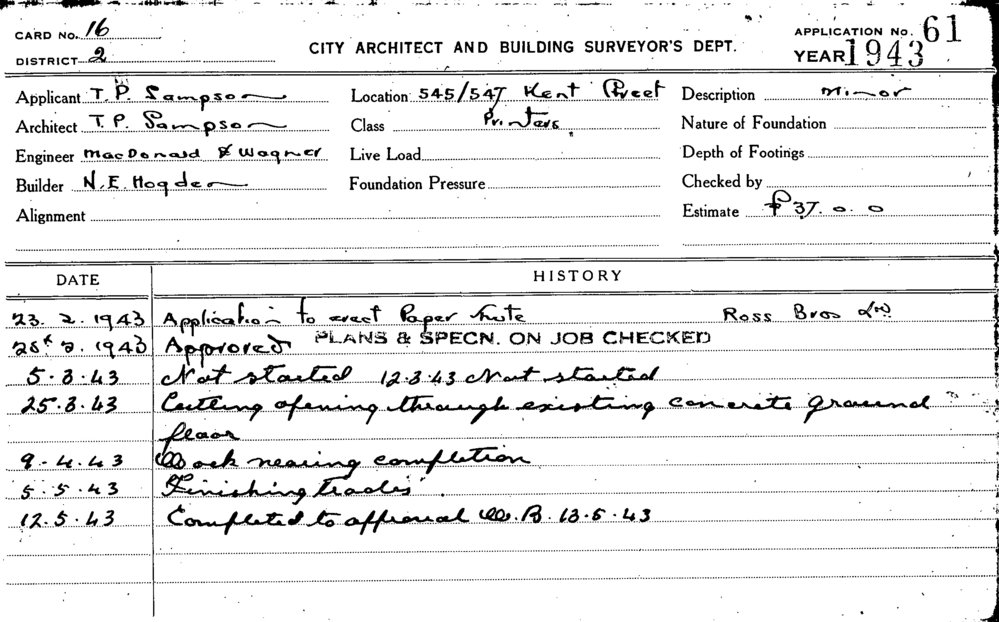 CARD No. 16
DISTRICT 2
CITY ARCHITECT AND BUILDING SURVEYOR'S DEPT.
APPLICATION No. 61
YEAR 1943
Applicant T. P. Sampson Location 545/547 Kent Street Description Minor
Architect T. P. Sampson Class Printers Nature of Foundation
Engineer MacDonald & Wagner Live Load Depth of Footings
Builder N. E. Hogden Foundation Pressure Checked by
Alignment Estimate £37. 0. 0
DATE HISTORY
23. 2. 1943 Application to erect Paper Shute Ross Bros Ltd
2. 1943 Approved PLANS & SPECN. ON JOB CHECKED
5. 3. 43 Not started 12.3.43 Not started
25. 3. 43 Cutting opening through existing concrete ground
floor
9. 4. 43 Work nearing completion
5. 5. 43 Finishing trades
12. 5. 43 Completed to approval W.B. 13.5.43